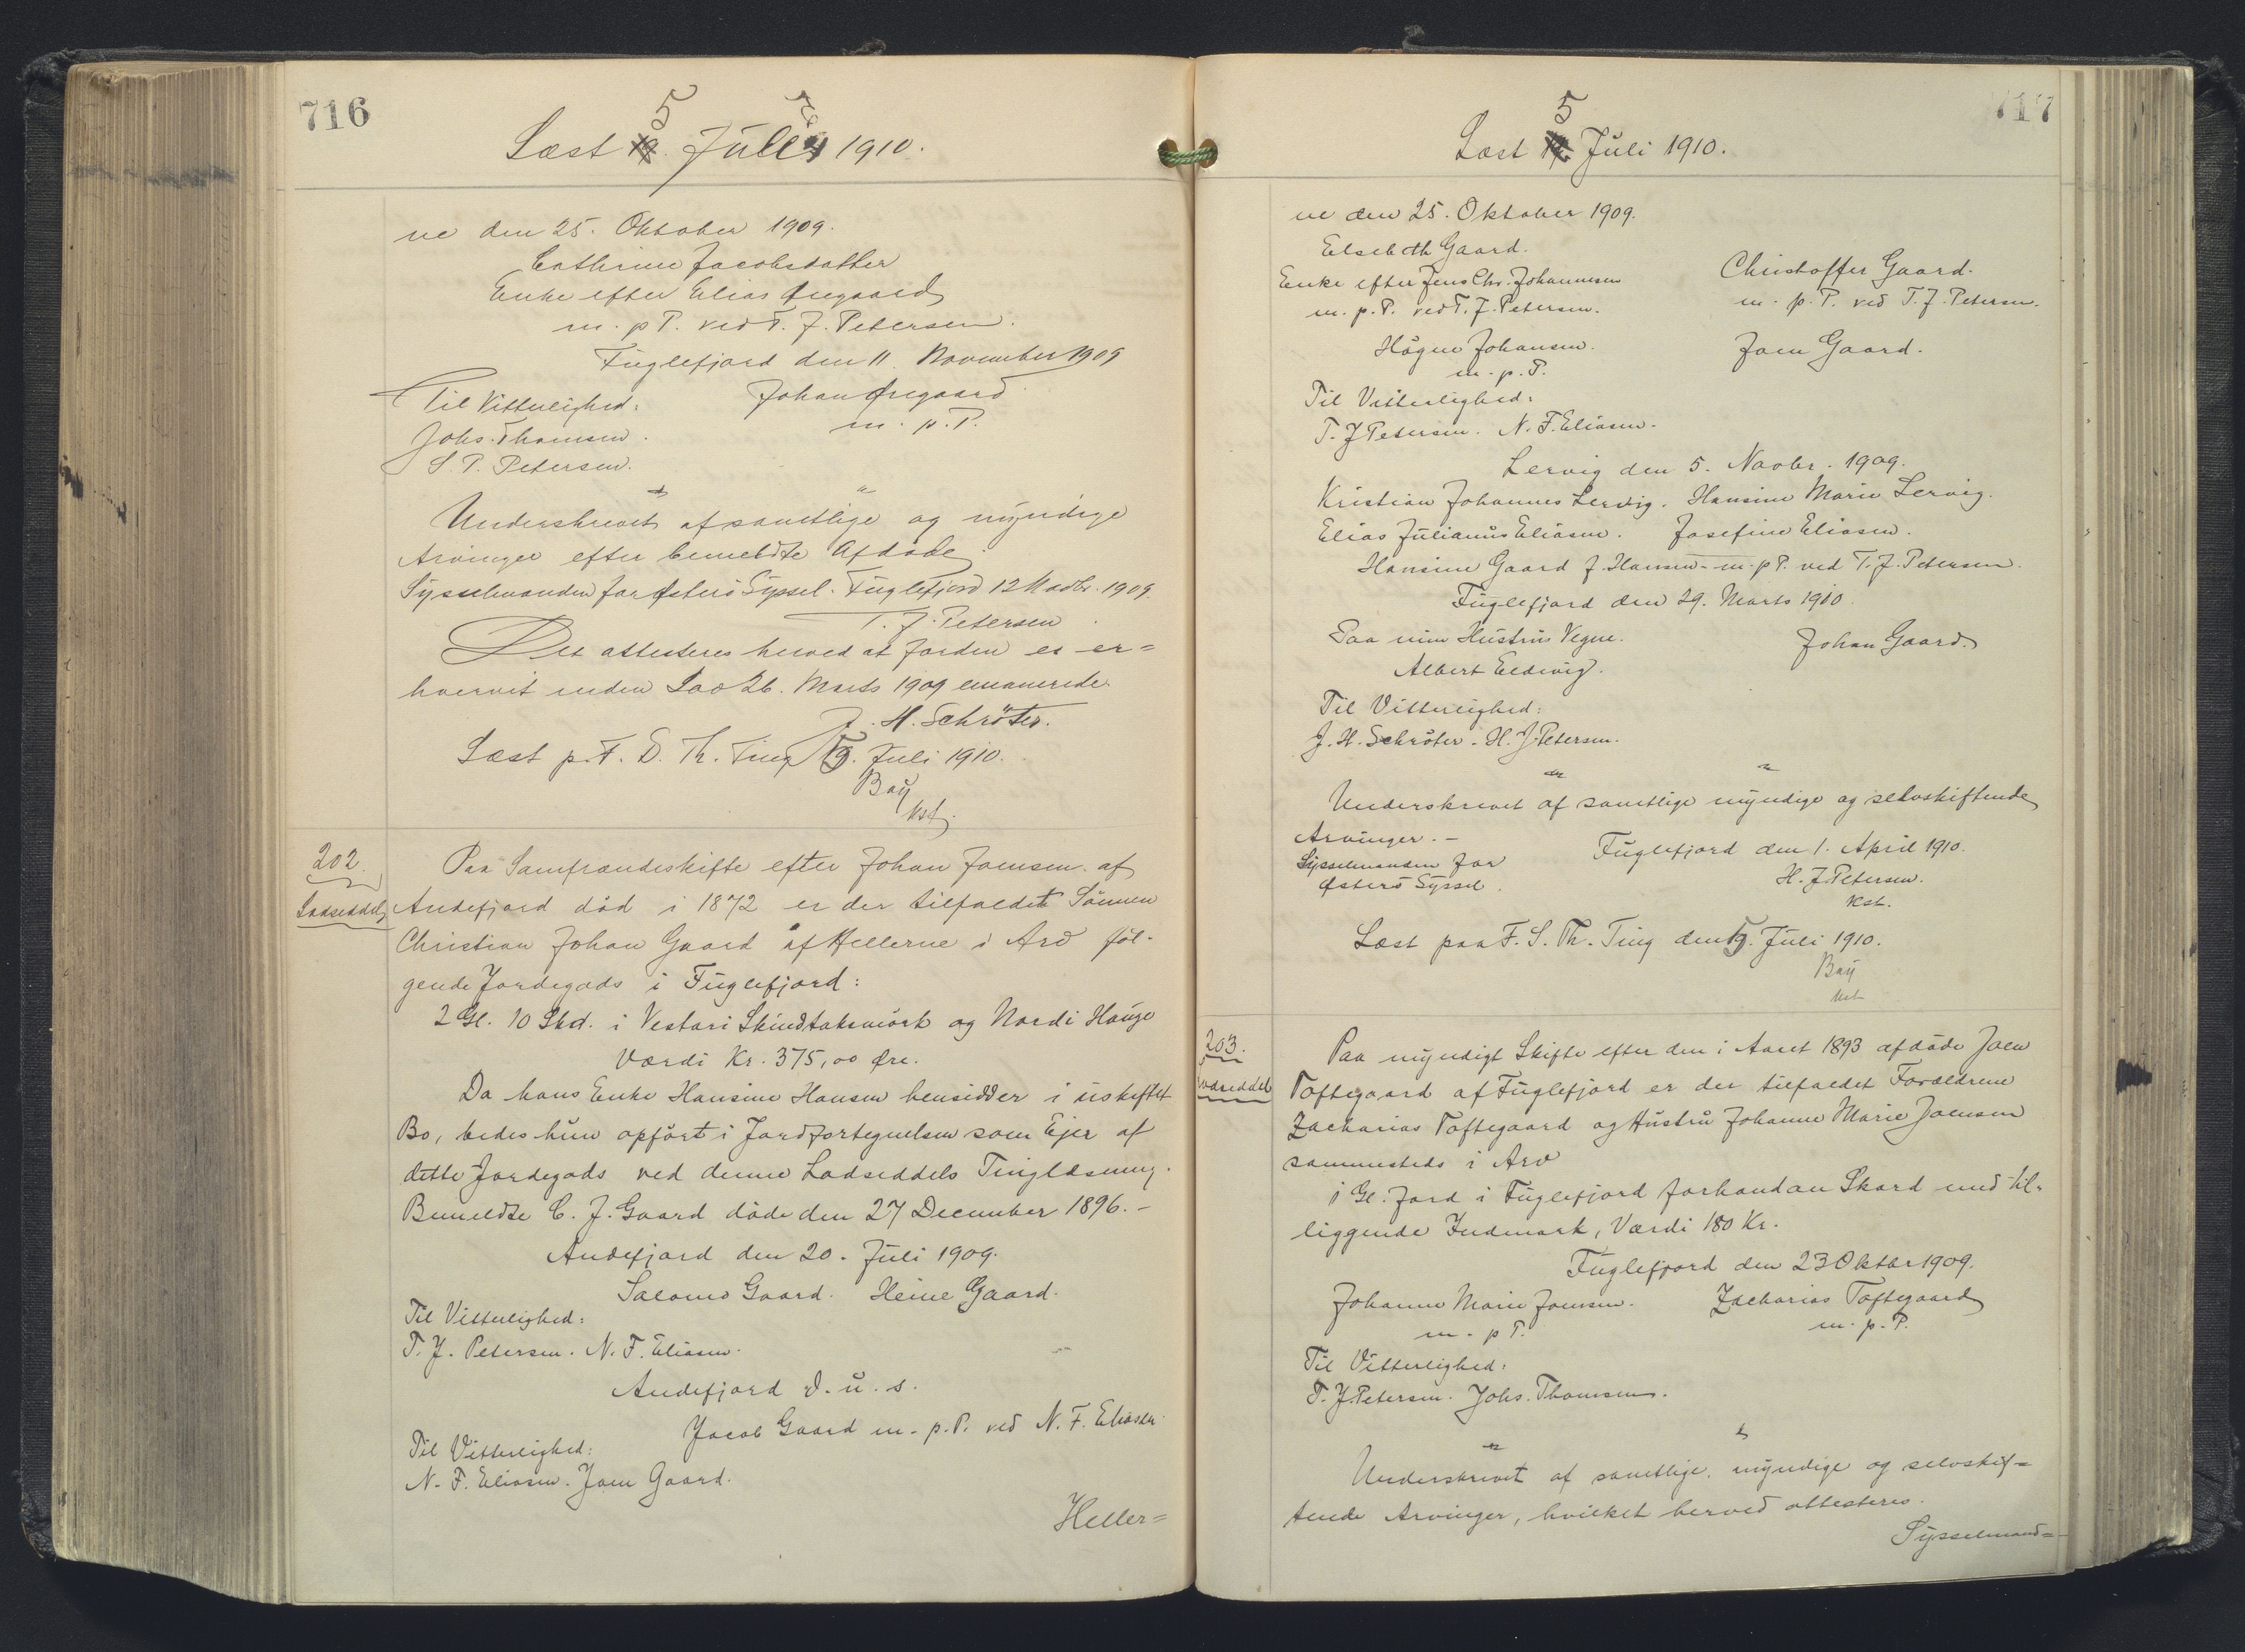 716
5
Læst Juli 1910.
ne den 25. Oktober 1909.
Cathrine Jacobsdatter
Enke efter Elias Øregaard
m. p P. ved T. J. Petersen.
Fuglefjord den 11. November 1909
Til Vitterlighed: Johan Øregaard
Johs. Thomsen. m. p. P.
S. P. Petersen.
Underskrevet af samtlige og myndige
Arvinger efter bemeldte Afdøde.
Sysselmanden for Østerø Syssel. Fuglefjord 12 Novbr. 1909.
T. J. Petersen
Det attesteres herved at Jorden er er=
hvervet inden Lov 26. Marts 1909 emanerede.
J. H. Schröter.
Læst p. F. S. Th. Ting 5. Juli 1910.
Bay
kst.
202.
Lodseddel
Paa Samfrændeskifte efter Johan Joensen af
Andefjord död i 1872 er der tilfaldet Sönnen
Christian Johan Gaard af Hellerne i Arv føl-
gende Jordegods i Fuglefjord:
2 Gl. 10 Skd. i Vestari Skindtaksmörk og Nordi Hauge
Værdi Kr. 375,00 Øre.
Da hans Enke Hansine Hansen hensidder i uskiftet
Bo, bedes hun opført i Jordfortegnelsen som Ejer af
dette Jordegods ved denne Lodseddels Tinglæsning.
Bemeldte C. J. Gaard døde den 27 December 1896.-
Andefjord den 20. Juli 1909.
Salomo Gaard. Heine Gaard.
Til Vitterlighed:
T. J. Petersen. N. F. Eliasen.
Andefjord d. u. s.
Jacob Gaard m. p. P. ved N. F. Eliasen.
Til Vitterlighed:
N. F. Eliasen. Joen Gaard.
Heller=
717
5
Læst Juli 1910.
ne den 25. Oktober 1909.
Elsebeth Gaard.
Enke efter Jens Chr. Johannesen Christoffer Gaard.
m. p. P. ved T. J. Petersen. m. p. P. ved T. J. Petersen.
Högne Johansen. Joen Gaard.
m. p. P.
Til Vitterlighed:
T. J Petersen. N. F. Eliasen.
Lervig den 5. Novbr. 1909.
Kristian Johannes Lervig. Hansine Marie Lervig.
Elias Julianus Eliasen. Josefine Eliasen.
Hansine Gaard f. Hansen - m. p P. ved T. J. Petersen.
Fuglefjord den 29. Marts 1910.
Paa min Hustrus Vegne. Johan Gaard.
Albert Eldevig.
Til Vitterlighed:
J. H. Schröter. H. J. Petersen.
Underskrevet af samtlige myndige og selvskiftende
Arvinger.-
Sysselmanden for Fuglefjord den 1. April 1910.
Østerø Syssel. H. J. Petersen.
kst.
Læst paa F. S. Th. Ting den 5. Juli 1910.
Bay
kst
203.
Lodseddel
Paa myndigt Skifte efter den i Aaret 1893 afdøde Joen
Toftegaard af Fuglefjord er der tilfaldet Forældrene
Zacharias Toftegaard og Hustru Johanne Marie Joensen
sammesteds i Arv
1 Gl. Jord i Fuglefjord forhandan Skard med til-
liggende Indmark, Værdi 180 Kr.
Fuglefjord den 23 Oktbr 1909.
Johanne Marie Joensen. Zacharias Toftegaard
m. p P. m. p. P.
Til Vitterlighed:
T. J. Petersen. Johs. Thomsen.
Underskrevet af samtlige, myndige og selvskif=
tende Arvinger, hvilket herved attesteres.
Sysselmand=